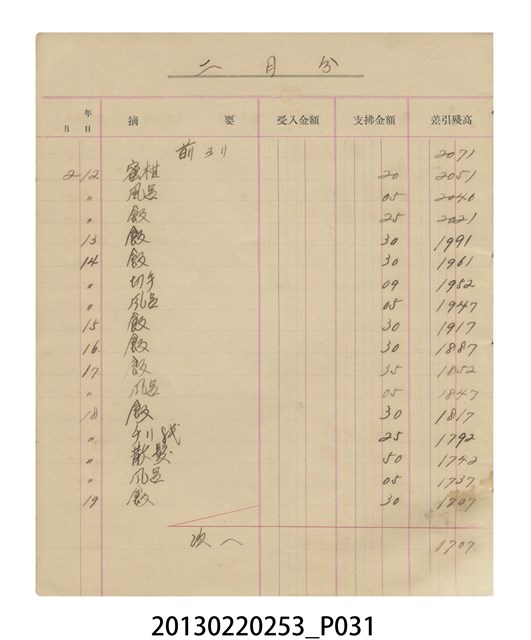 二月分
年 月 日 摘要 受入金額 支拂金額 差引殘高
前ヨリ 2071
2 12 蜜柑 20 2051
〃 風呂 05 2046
〃 飯 25 2021
13 飯 30 1991
14 飯 30 1961
〃 切手 09 1952
〃 風呂 05 1947
15 飯 30 1917
16 飯 30 1887
17 飯 35 1852
〃 風呂 05 1847
18 飯 30 1817
〃 25 1792
〃 散髮 50 1742
〃 風呂 05 1737
19 飯 30 1707
次へ 1707
20130220253_P031